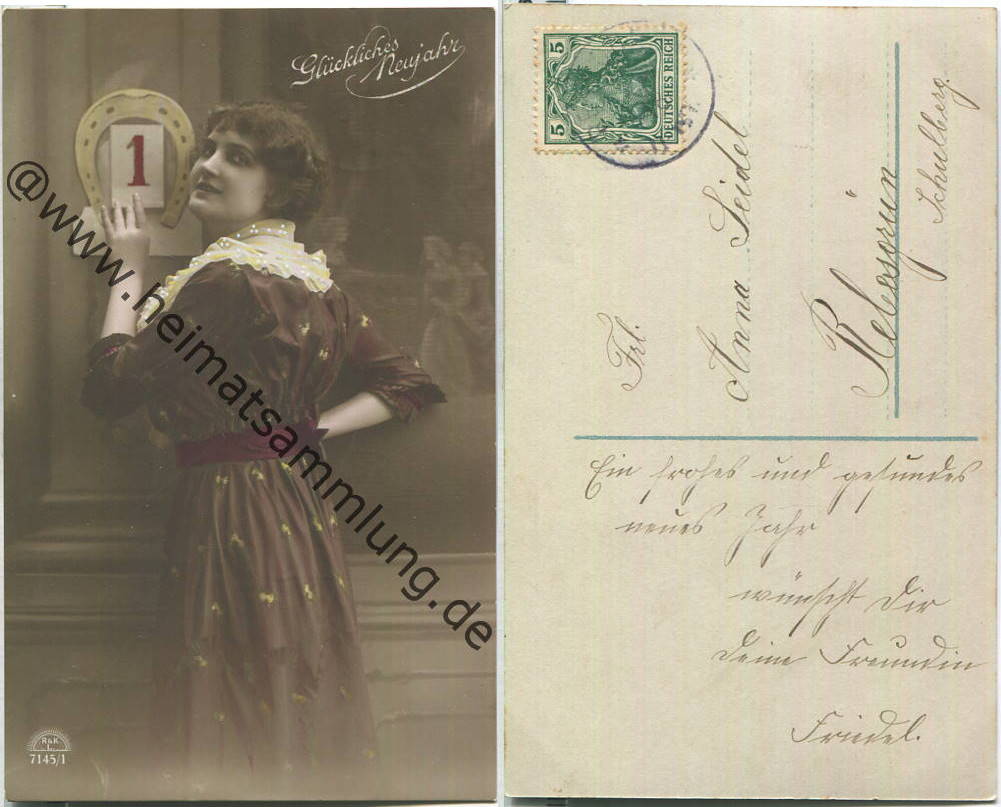 Glückliches
Neujahr
1
@www.heimatsammlung.de
R&K
L.
7145/1
5
5
DEUTSCHES REICH
Frl.
Anna Seidel
Rebesgrün
Schulberg.
Ein frohes und gesundes
neues Jahr
wünscht Dir
Deine Freundin
Friedel.